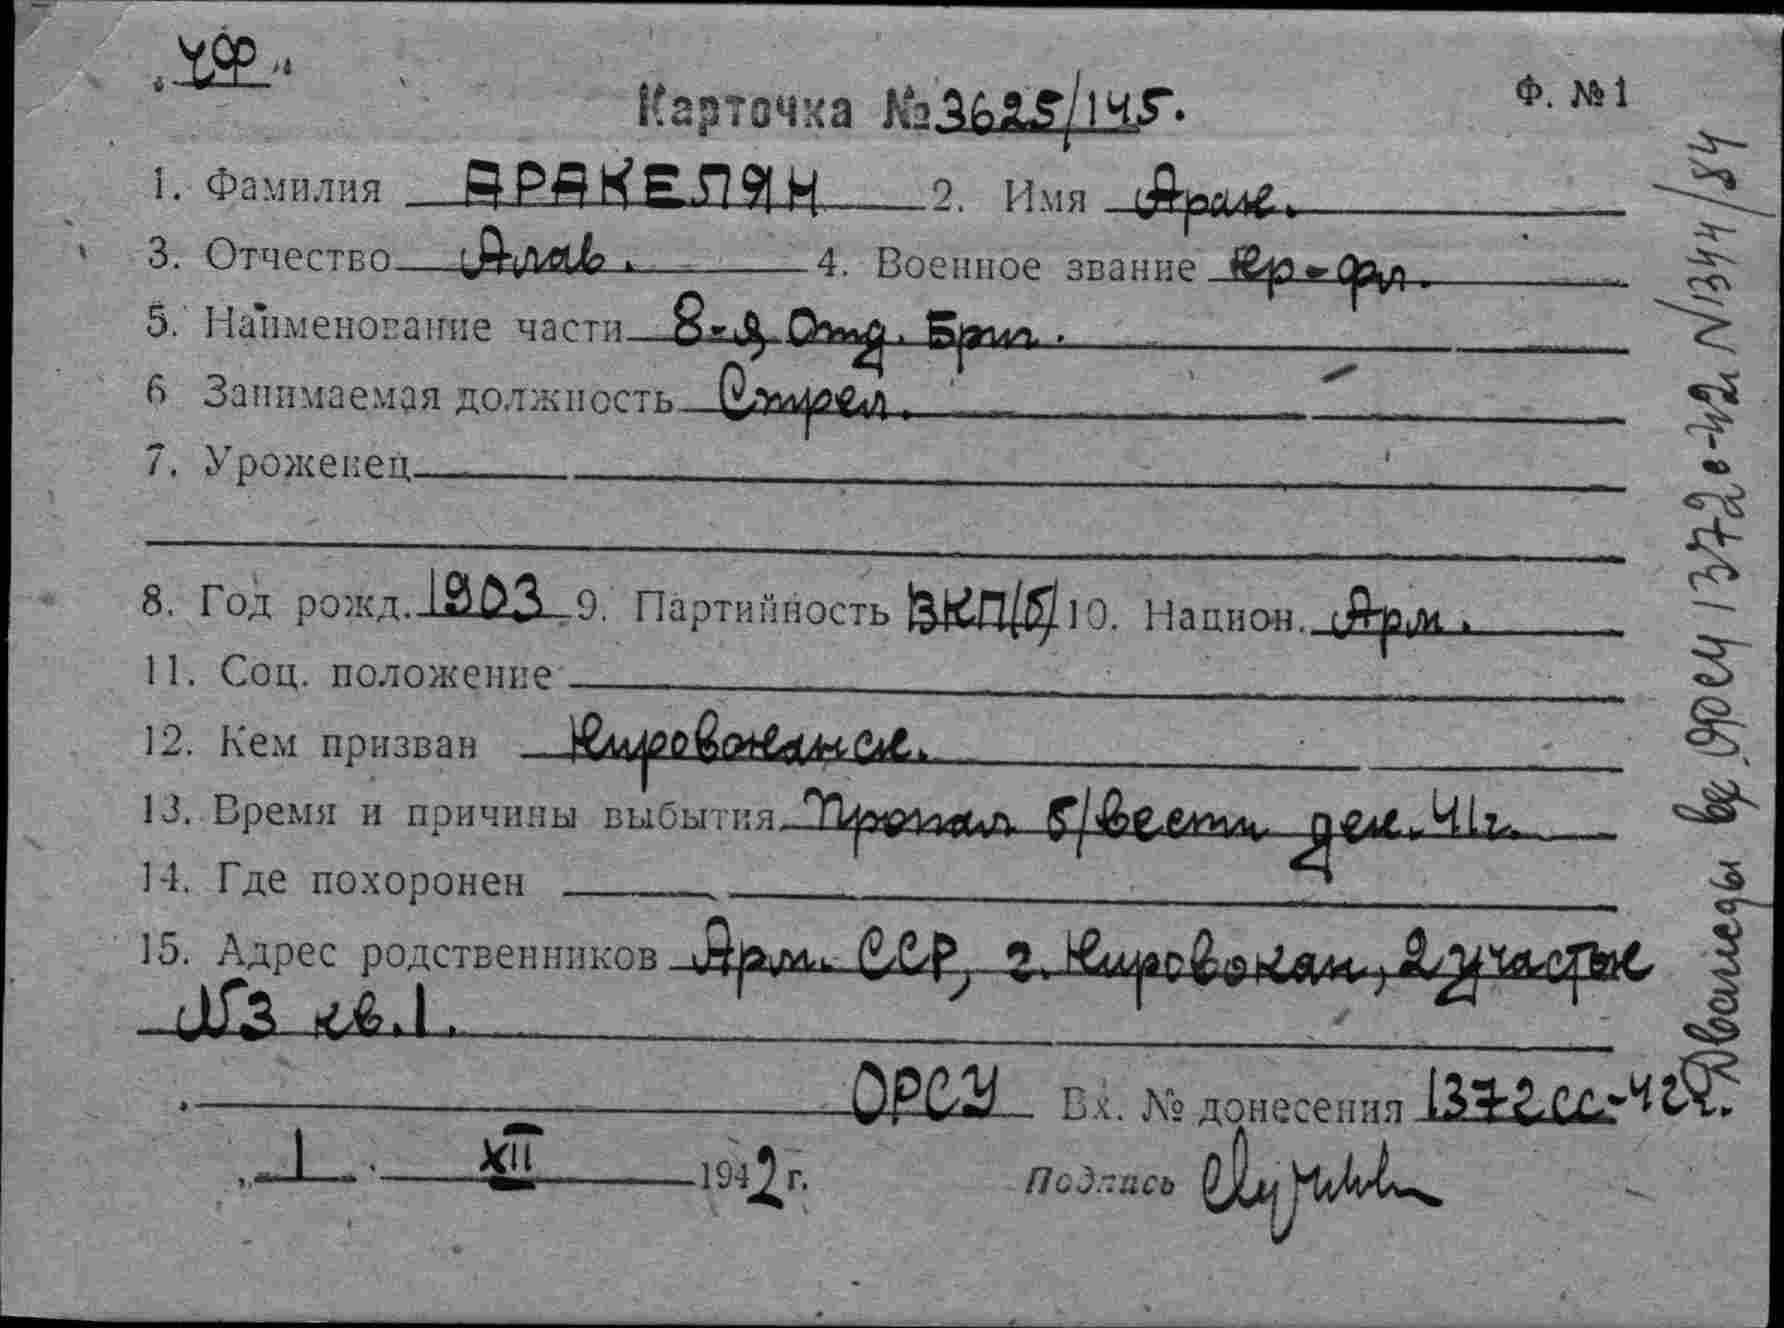 „УФ“
Карточка № 3625/145.
Ф. №1
1. Фамилия АРАКЕЛЯН 2. Имя Арак.
3. Отчество Алав. 4. Военное звание кр-фл.
5. Наименование части 8-я Отд. Бриг.
6 Занимаемая должность Стрел.
7. Уроженец
8. Год рожд. 1903 9. Партийность ВКП(б) 10. Национ. Арм.
11. Соц. положение
12. Кем призван Кировоканск.
13. Время и причины выбытия Пропал б/вести дек. 41г.
14. Где похоронен
15. Адрес родственников Арм. ССР, г. Кировокан, 2 участок
№3 кв. 1.
ОРСУ Вх. № донесения 1372сс-42г.
„ 1 XII 1942 г. Подпись
вх. ОРСУ 1372с-42г N1344/84